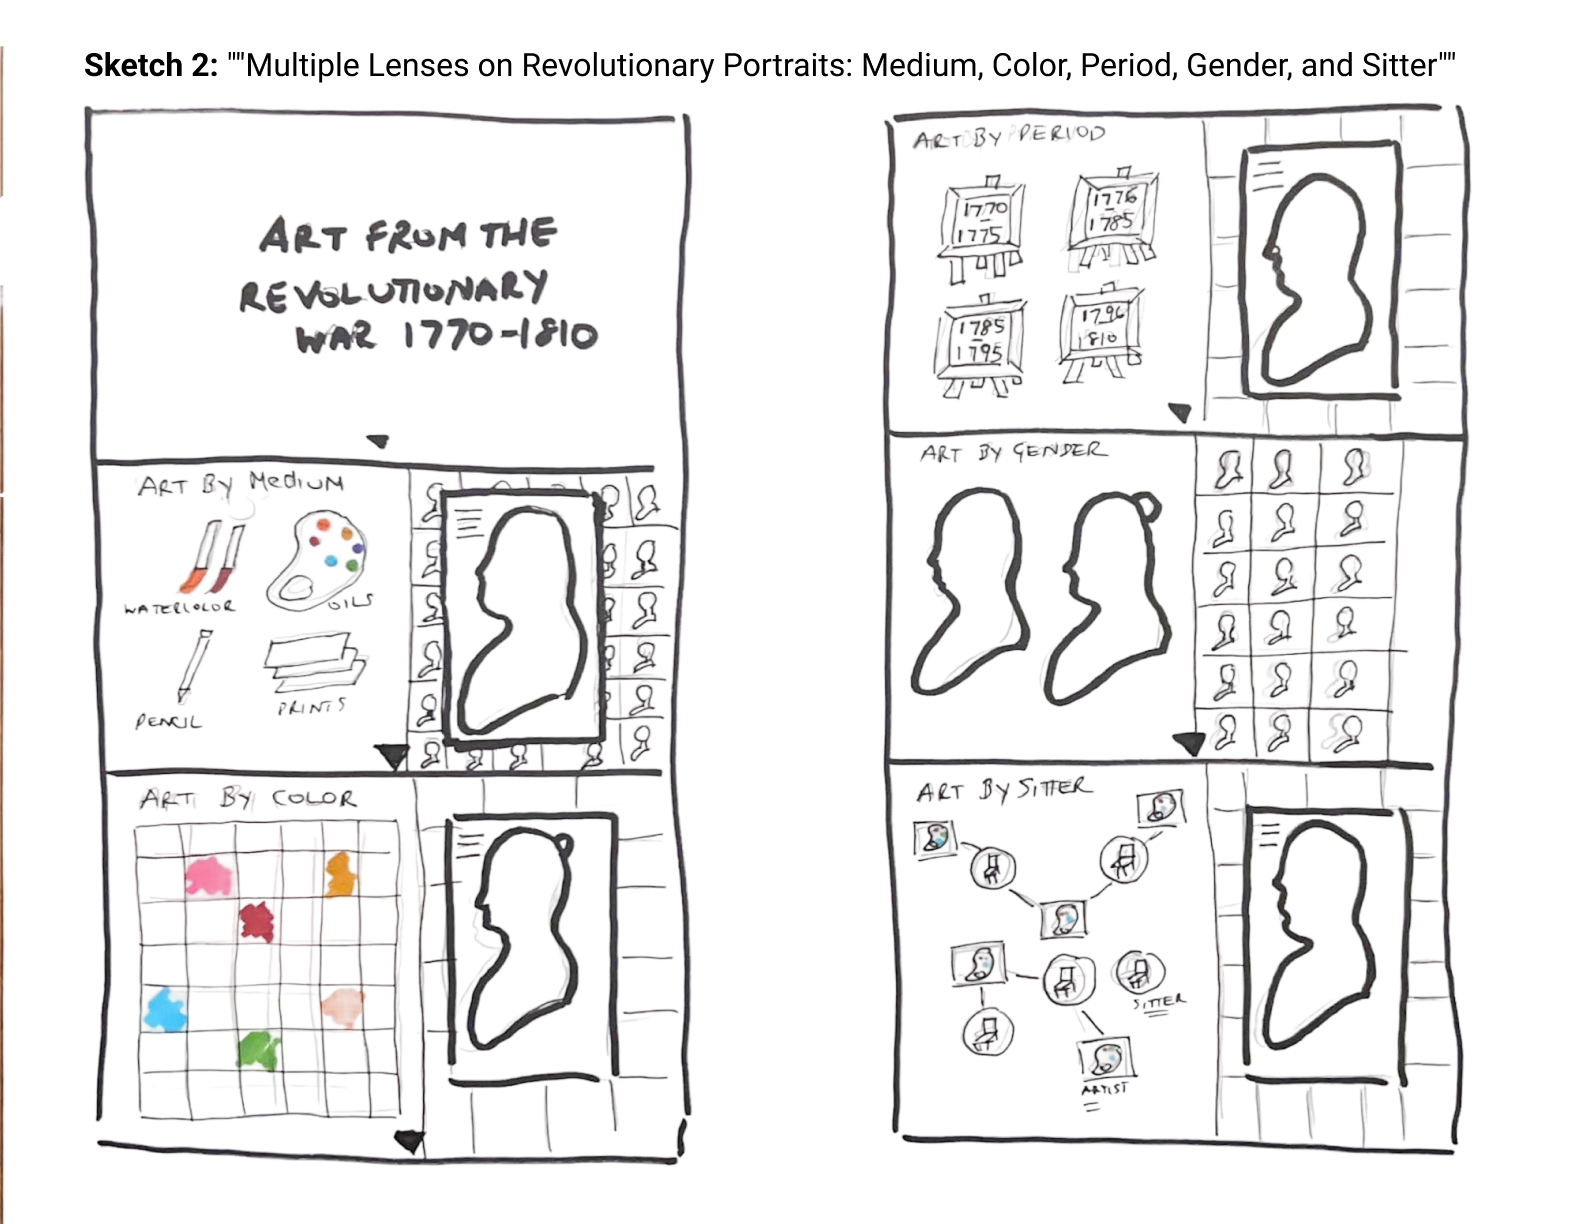 Sketch 2: ""Multiple Lenses on Revolutionary Portraits: Medium, Color, Period, Gender, and Sitter""
ART FROM THE
REVOLUTIONARY
WAR 1770-1810
ART BY MEDIUM
WATERCOLOR
OILS
PENCIL
PRINTS
ART BY COLOR
ART BY PERIOD
1770
-
1775
1776
-
1785
1785
-
1795
1796
1810
ART BY GENDER
ART BY SITTER
SITTER
ARTIST